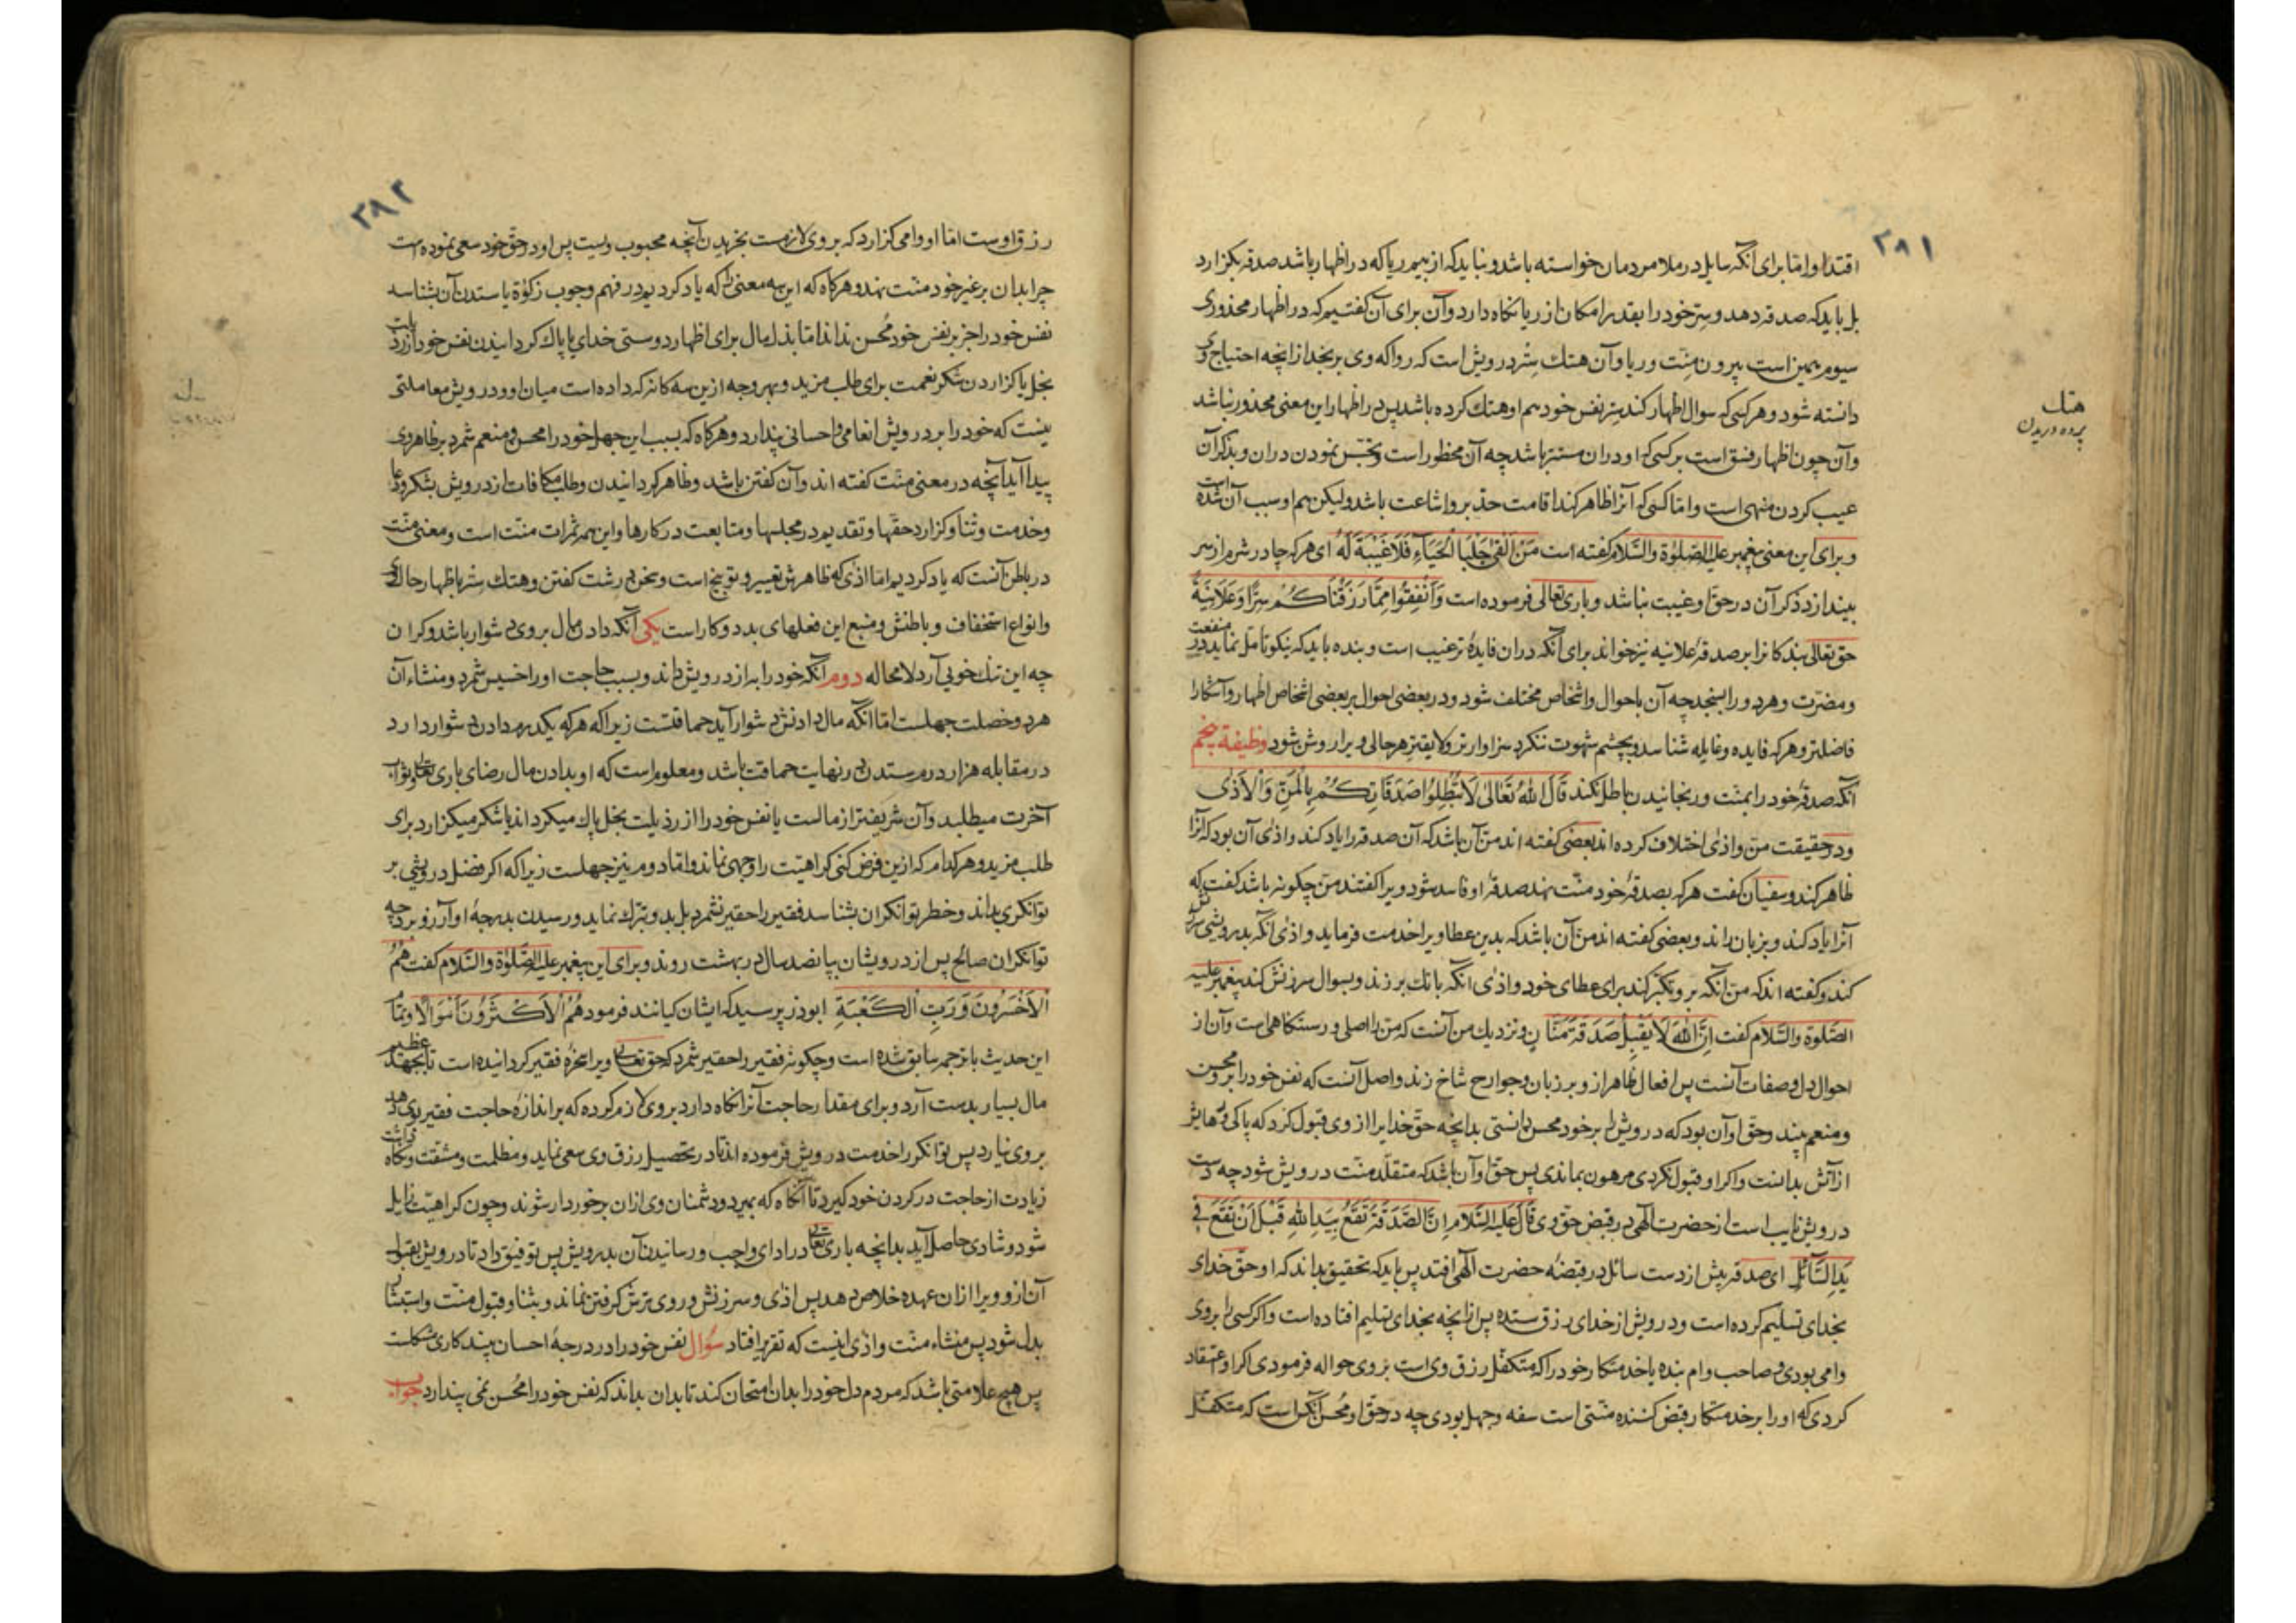 ۳۸۱
اقتدا و اما برای آنکه سایل در ملا مردمان خواسته باشد و نباید که از بیم ریا که در اظهار باشد صدقه بگزارد
بل باید که صدقه دهد و سِرّ خود را بقدر امکان از ریا نگاه دارد و آن برای آن گفتیم که در اظهار محذوری
سیوم همین است بیرون منّت و ریا و آن هتك سِتر درویش است که روا که وی برنجد از انچه احتیاج وی
دانسته شود و هر کسی که سوال اظهار کند سِتر نفس خود هم او هتك کرده باشد پس در اظهار این معنی محذور نباشد
هتك
پرده دریدن
و آن چون اظهار فسق است بر کسی که او دران مستتر باشد چه آن محظور است و تجسّس نمودن دران و بذکر آن
عیب کردن منهی است و اما کسی که آنرا ظاهر کند اقامت حد برو اشاعت باشد ولیکن هم او سبب آن شده است
و برای این معنی پیغمبر علیه الصّلوٰة والسّلام گفته است مَنْ اَلْقیٰ جِلْبَابَ الْحَیَآءِ فَلَا غَیْبَةَ لَهُ ای هر که چادر شرم از سر
بیندازد ذکر آن در حقّ او غیبت نباشد و باری تعالی فرموده است وَاَنْفِقُوا مِمَّا رَزَقْنَاکُمْ سِرًّا وَعَلَانِیَةً
حق تعالی بندکانرا بر صدقۀ علانیه نیز خواند برای آنکه دران فایدۀ ترغیب است و بنده باید که نیکو تامل نماید در منفعت
و مضرّت و هر دو را بسنجد چه آن باحوال و اشخاص مختلف شود و در بعضی احوال بر بعضی اشخاص اظهار و آشکارا
فاضلتر و هر که فایده و غایله شناسد و بچشم شهوت ننگرد سزاوارتر و لایقتر هر حالی ویرا روشن شود وظیفۀ پنجم
آنکه صدقۀ خود را بمنّت و رنجانیدن باطل نکند قَالَ اللهُ تَعَالیٰ لَاتُبْطِلُوا صَدَقَاتِکُمْ بِالْمَنِّ وَالْاَذیٰ
و در حقیقت منّ و اذی اختلاف کرده اند بعضی گفته اند منّ آن باشد که آن صدقه را یاد کند و اذی آن بود که آنرا
ظاهر کند و سفیان گفت هر که بصدقۀ خود منّت نهد صدقۀ او فاسد شود ویرا گفتند منّ چگونه باشد گفت که
آنرا یاد کند و بزبان راند و بعضی گفته اند منّ آن باشد که بدین عطا ویرا خدمت فرماید و اذی آنکه بدرویشی سرزنش
کند و گفته اند که منّ آنکه برو تکبّر کند برای عطای خود و اذی انکه بانك بر زند و بسوال سرزنش کند پیغمبر علیه
الصّلوة والسّلام گفت اِنَّ اللهَ لَا یَقْبِلُ صَدَقَةَ مَنَّانٍ و نزدیك من آنست که منّ را اصلی و رستنگاهی است و آن از
احوال دل و صفات آنست پس افعال ظاهر از و بر زبان و جوارح شاخ زند و اصل آنست که نفس خود را بر و محسن
و منعم بیند و حق او آن بود که درویش را بر خود محسن دانستی بدانچه حقّ خدایرا از وی قبول کرد که پاکی و رهایش
از آتش بدانست و اکر او قبول نکردی مرهون بماندی پس حق او آن باشد که متقلّد منّت درویش شود چه دست
درویش نایب است از حضرت الٓهی در قبض حق وی قَالَ عَلَیْهِ السَّلَام اِنَّ الصَّدَقَةَ تَقَعُ بِیَدِ اللهِ قَبْلَ اَنْ تَقَعَ فِی
یَدِ السَّآئِلِ ای صدقه پیش از دست سائل در قبضۀ حضرت الٓهی افتد پس باید که تحقیق بداند که او حقّ خدای
بخدای تسلیم کرده است و درویش از خدای رزق ستده پس ازانچه بخدای تسلیم افتاده است و اکر کسی را بر وی
وامی بودی و صاحب وام بنده یا خدمتکار خود را که متکفّل رزق وی است بروی حواله فرمودی اکر او اعتقاد
کردی که او را بر خدمتکار قبض کننده منّتی است سفه و جهل بودی چه در حق او محسن آنکس است که متکفّل
۳۸۲
رزق اوست اما او وامی گزارد که بر وی لازمست بخریدن آنچه محبوب ویست پس او در حقّ خود سعی نموده است
چرا بدان بر غیر خود منّت نهد و هرکاه که این سه معنی را که یاد کردیم در فهم وجوب زکوٰة یا ستدن آن بشناسد
نفس خود را جز بر نفس خود مُحسن نداند اما بذل مال برای اظهار دوستی خدای یا پاك کردانیدن نفس خود از رذیلت
بخل یا گزاردن شکر نعمت برای طلب مزید و بهر وجه ازین سه کانه که داده است میان او و درویش معاملتی
نیست که خود را بر درویش انعامی و احسانی پندارد و هرکاه که بسبب این جهل خود را محسن و منعم شمرد بر ظاهر وی
پیدا آید آنچه در معنی منّت گفته اند و آن گفتن باشد و ظاهر کردانیدن و طلب مکافات از درویش بشکر و دعا
و خدمت و ثنا و گزارد حقّها و تقدیم در مجلسها و متابعت در کارها و این همه ثمرات منّت است و معنی منّت
در باطن آنست که یاد کردیم اما اذی که ظاهرش تعییر و توبیخ است و سخن درشت گفتن و هتك ستر باظهار حال وی
و انواع استخفاف و باطنش و منبع این فعلهای بد دو کار است یکی آنکه دادن مال بروی دشوار باشد و کران
چه این تنك خویی آرد لامحاله دوم آنکه خود را به از درویش داند و بسبب حاجت او را خسیس شمرد و منشاء آن
هر دو خصلت جهلست اما آنکه مال دادنش دشوار آید حماقتست زیراکه هر که یکدرم دادن دشوار دارد
در مقابله هزار درم ستدن در نهایت حماقت باشد و معلوم است که او بدادن مال رضای باری تعالی و ثواب
آخرت میطلبد و آن شریفتر از مالست یا نفس خود را از رذیلت بخل پاك میکرداند یا شکر میگزارد برای
طلب مزید و هرکدام که ازین فرض کنی کراهیّت را وجهی نماند و اما دوم نیز جهلست زیراکه اکر فضل درویشی بر
توانکری بداند و خطر توانکران بشناسد فقیر را حقیر نشمرد بل بدو تبرّك نماید و رسیدن بدرجۀ او آرزو برد چه
توانکران صالح پس از درویشان بپانصد سال در بهشت روند و برای این پیغمبر علیه الصّلوٰة والسّلام گفت هُمُ
الْاَخْسَرُونَ وَرَبِّ الْکَعْبَةِ ابوذر پرسید که ایشان کیانند فرمود هُمُ الْاَکْثَرُونَ اَمْوَالًا و تمام
این حدیث با ترجمه سابق شده است و چگونه فقیر را حقیر شمرد که حق تعالی ویرا سخرۀ فقیر کردانیده است تا بجهد عظیم
مال بسیار بدست آرد و برای مقدار حاجت آنرا نگاه دارد بر وی لازم کرده که بر اندازۀ حاجت فقیر بوی دهد
بر وی نیارد پس توانکر را خدمت درویش فرموده اند تا در تحصیل رزق وی سعی نماید و مظلمت و مشقت و نگاه داشت
زیادت از حاجت در کردن خود گیرد تا آنگاه که بمیرد و دشمنان وی ازان برخوردار شوند و چون کراهیّت زایل
شود و شادی حاصل آید بدانچه باری تعالی در ادای واجب و رسانیدن آن بدرویش پس توفیق داد تا درویش بقبول
آن ازو ویرا ازان عهده خلاص دهد پس اذی و سرزنش و روی ترش گرفتن نماند و بثنا و قبول منّت و استبشار
بدل شود پس منشاء منّت و اذی اینست که تقریر افتاد سؤال نفس خود را در درجۀ احسان بیند کاری مشکلست
پس هیچ علامتی باشد که مردم دل خود را بدان امتحان کند تا بدان بداند که نفس خود را مُحسن نمی پندارد جواب